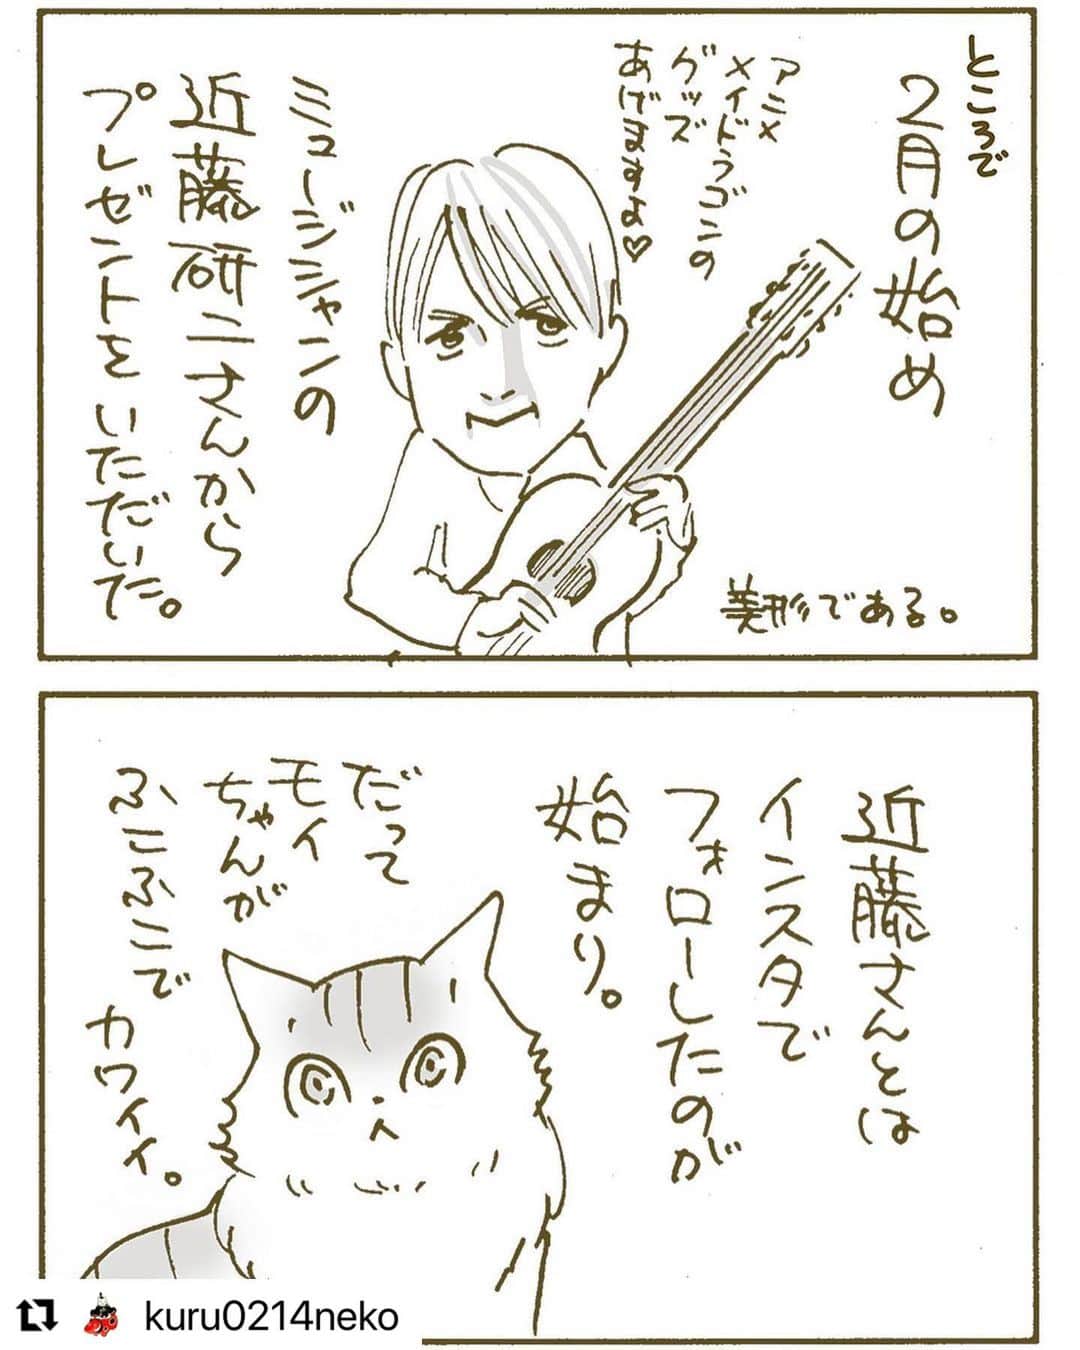 ところで
2月の始め
アニメ
メイドラゴンの
グッズ
あげますよ♡
ミュージシャンの
近藤研二さんから
プレゼントをいただいた。
美形である。
近藤さんとは
インスタで
フォローしたのが
始まり。
だって
モイ
ちゃんが
ふこふこで
カワイイ。
kuru0214neko